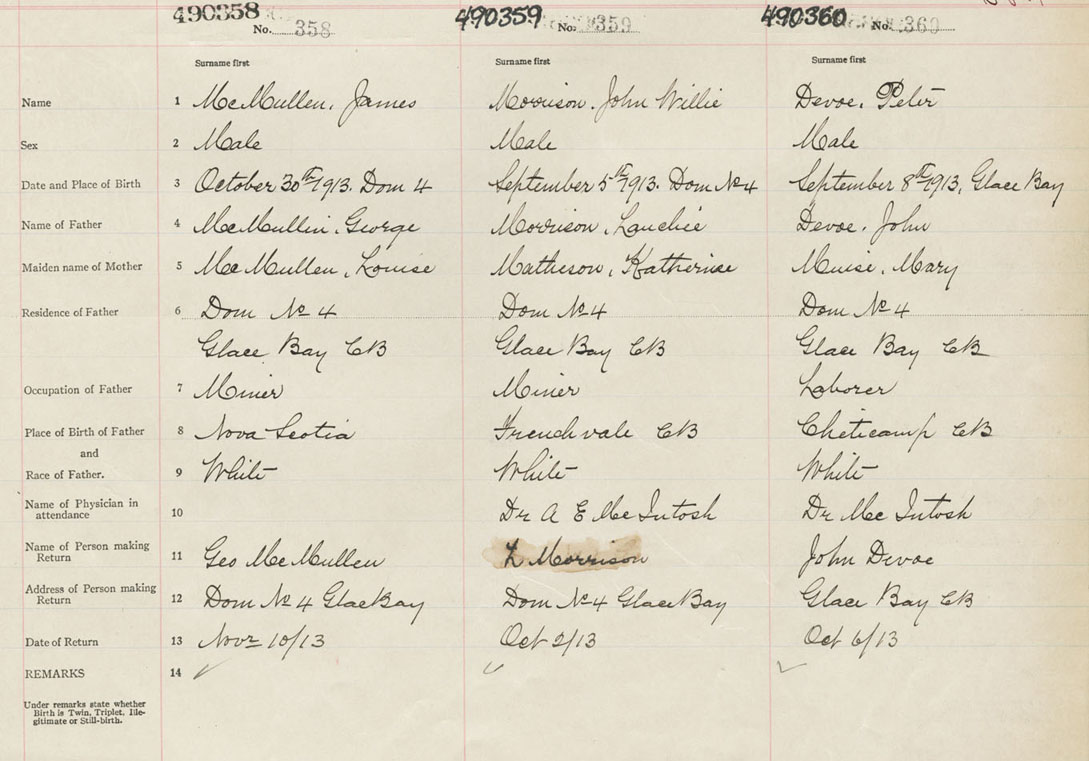 490358 490359 490360
No. 358 No. 359 No. 360
Surname first Surname first Surname first
Name 1 McMullen, James Morrison. John Willie Devoe. Peter
Sex 2 Male Male Male
Date and Place of Birth 3 October 30th 1913. Dom 4 September 5th 1913. Dom No 4 September 8th 1913, Glace Bay
Name of Father 4 McMullin, George Morrison, Lauchie Devoe. John
Maiden name of Mother 5 McMullen, Louise Matheson, Katherine Muise, Mary
Residence of Father 6 Dom No 4 Dom No 4 Dom No 4
Glace Bay CB Glace Bay CB Glace Bay CB
Occupation of Father 7 Miner Miner Laborer
Place of Birth of Father 8 Nova Scotia Frenchvale CB Cheticamp CB
and
Race of Father. 9 White White White
Name of Physician in
attendance 10 Dr A E McIntosh Dr McIntosh
Name of Person making
Return 11 Geo McMullen L Morrison John Devoe
Address of Person making
Return 12 Dom No 4 Glace Bay Dom No 4 Glace Bay Glace Bay CB
Date of Return 13 Novr 10/13 Oct 2/13 Oct 6/13
REMARKS 14
Under remarks state whether
Birth is Twin, Triplet, Ille-
gitimate or Still-birth.